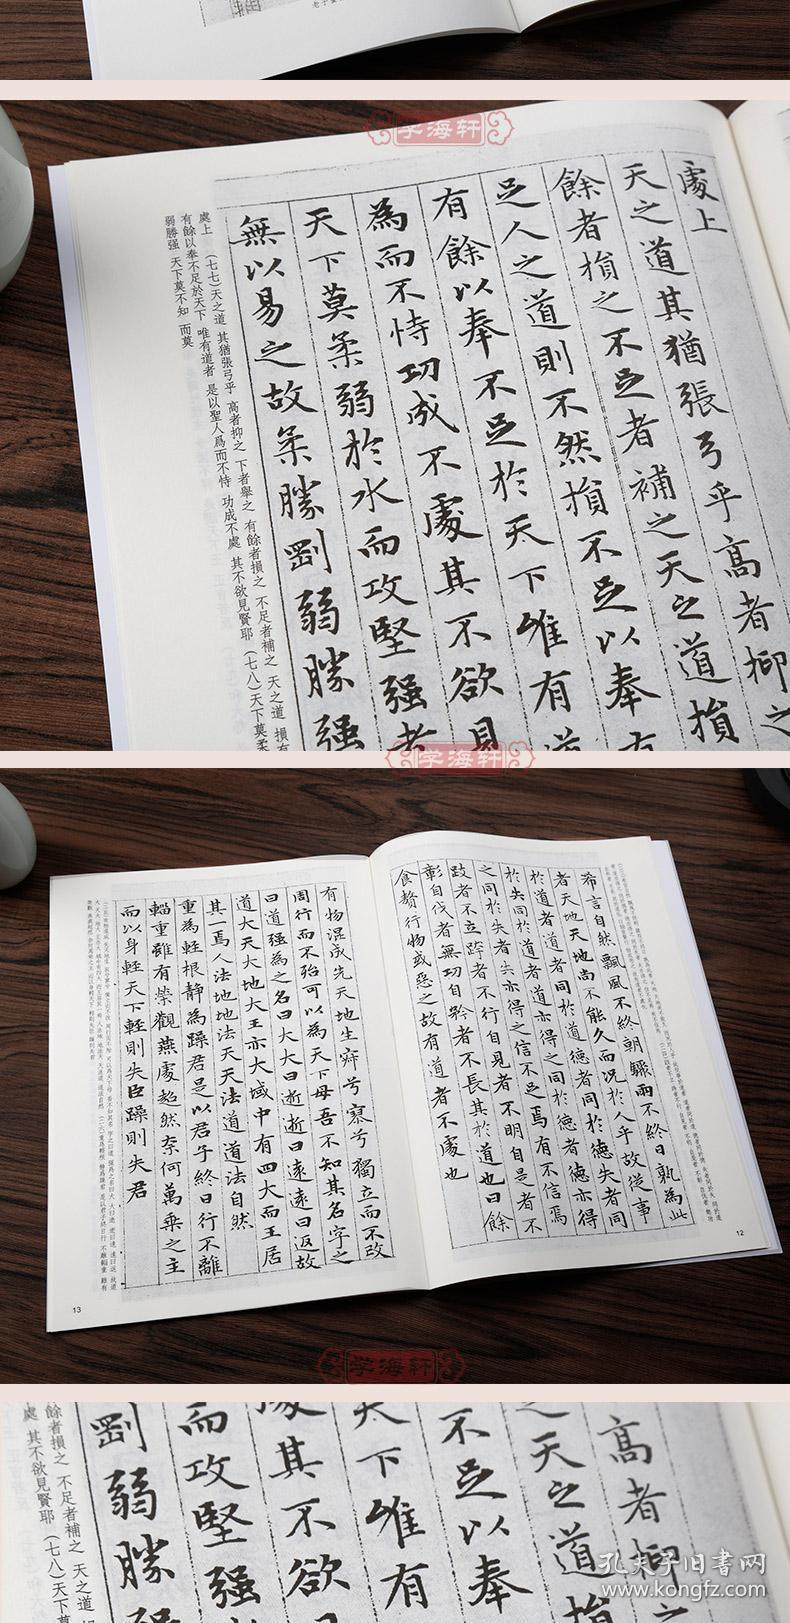 老子
学海轩
處上
天之道其猶張弓乎高者抑之
餘者損之不足者補之天之道損
足人之道則不然損不足以奉
有餘以奉不足於天下唯有道
為而不恃功成不處其不欲見
天下莫柔弱於水而攻堅强者
無以易之故柔勝剛弱勝强
處上 (七七)天之道 其猶張弓乎 高者抑之 下者舉之 有餘者損之 不足者補之 天之道 損有
有餘以奉不足於天下 唯有道者 是以聖人爲而不恃 功成不處 其不欲見賢耶 (七八)天下莫柔
弱勝强 天下莫不知 而莫
学海轩
希言自然飄風不終朝驟雨不終日孰為此
者天地天地尚不能久而況於人乎故從事
於道者道者同於道德者同於德失者同
於失同於道者道亦得之同於德者德亦得
之同於失者失亦得之信不足焉有不信焉
跂者不立跨者不行自見者不明自是者不
彰自伐者無功自矜者不長其於道也曰餘
食贅行物或惡之故有道者不處也
12
有物混成先天地生寂兮寥兮獨立而不改
周行而不殆可以為天下母吾不知其名字之
曰道强為之名曰大大曰逝逝曰遠遠曰返故
道大天大地大王亦大域中有四大而王居
其一焉人法地地法天天法道道法自然
重為輕根静為躁君是以君子終日行不離
輜重雖有榮觀燕處超然奈何萬乘之主
而以身輕天下輕則失臣躁則失君
13
学海轩
高者抑
之天之道
不足以奉
天下唯有
處其不欲
而攻堅强
剛弱勝
餘者損之 不足者補之 天之道
處 其不欲見賢耶 (七八)天下
孔夫子旧书网
www.kongfz.com